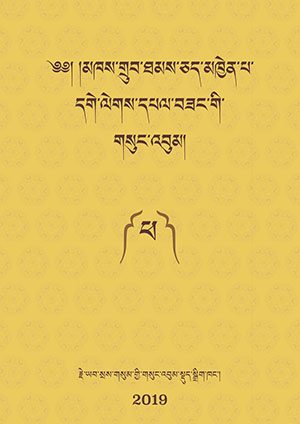 ༄༅། །མཁས་གྲུབ་ཐམས་ཅད་མཁྱེན་པ་
དགེ་ལེགས་དཔལ་བཟང་གི་
གསུང་འབུམ།
པ
རྗེ་ཡབ་སྲས་གསུམ་གྱི་གསུང་འབུམ་སྡུད་སྒྲིག་ཁང་།
2019